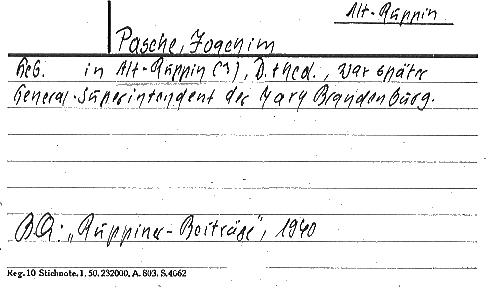 Alt-Ruppin
Pasche, Joachim
Geb. in Alt-Ruppin (?), D. theol., war später
General-Superintendent der Mark Brandenburg.
BQ: „Ruppiner-Beiträge", 1940
Reg. 10 Stichnote. 1. 50. 232000. A. 803. S. 4062